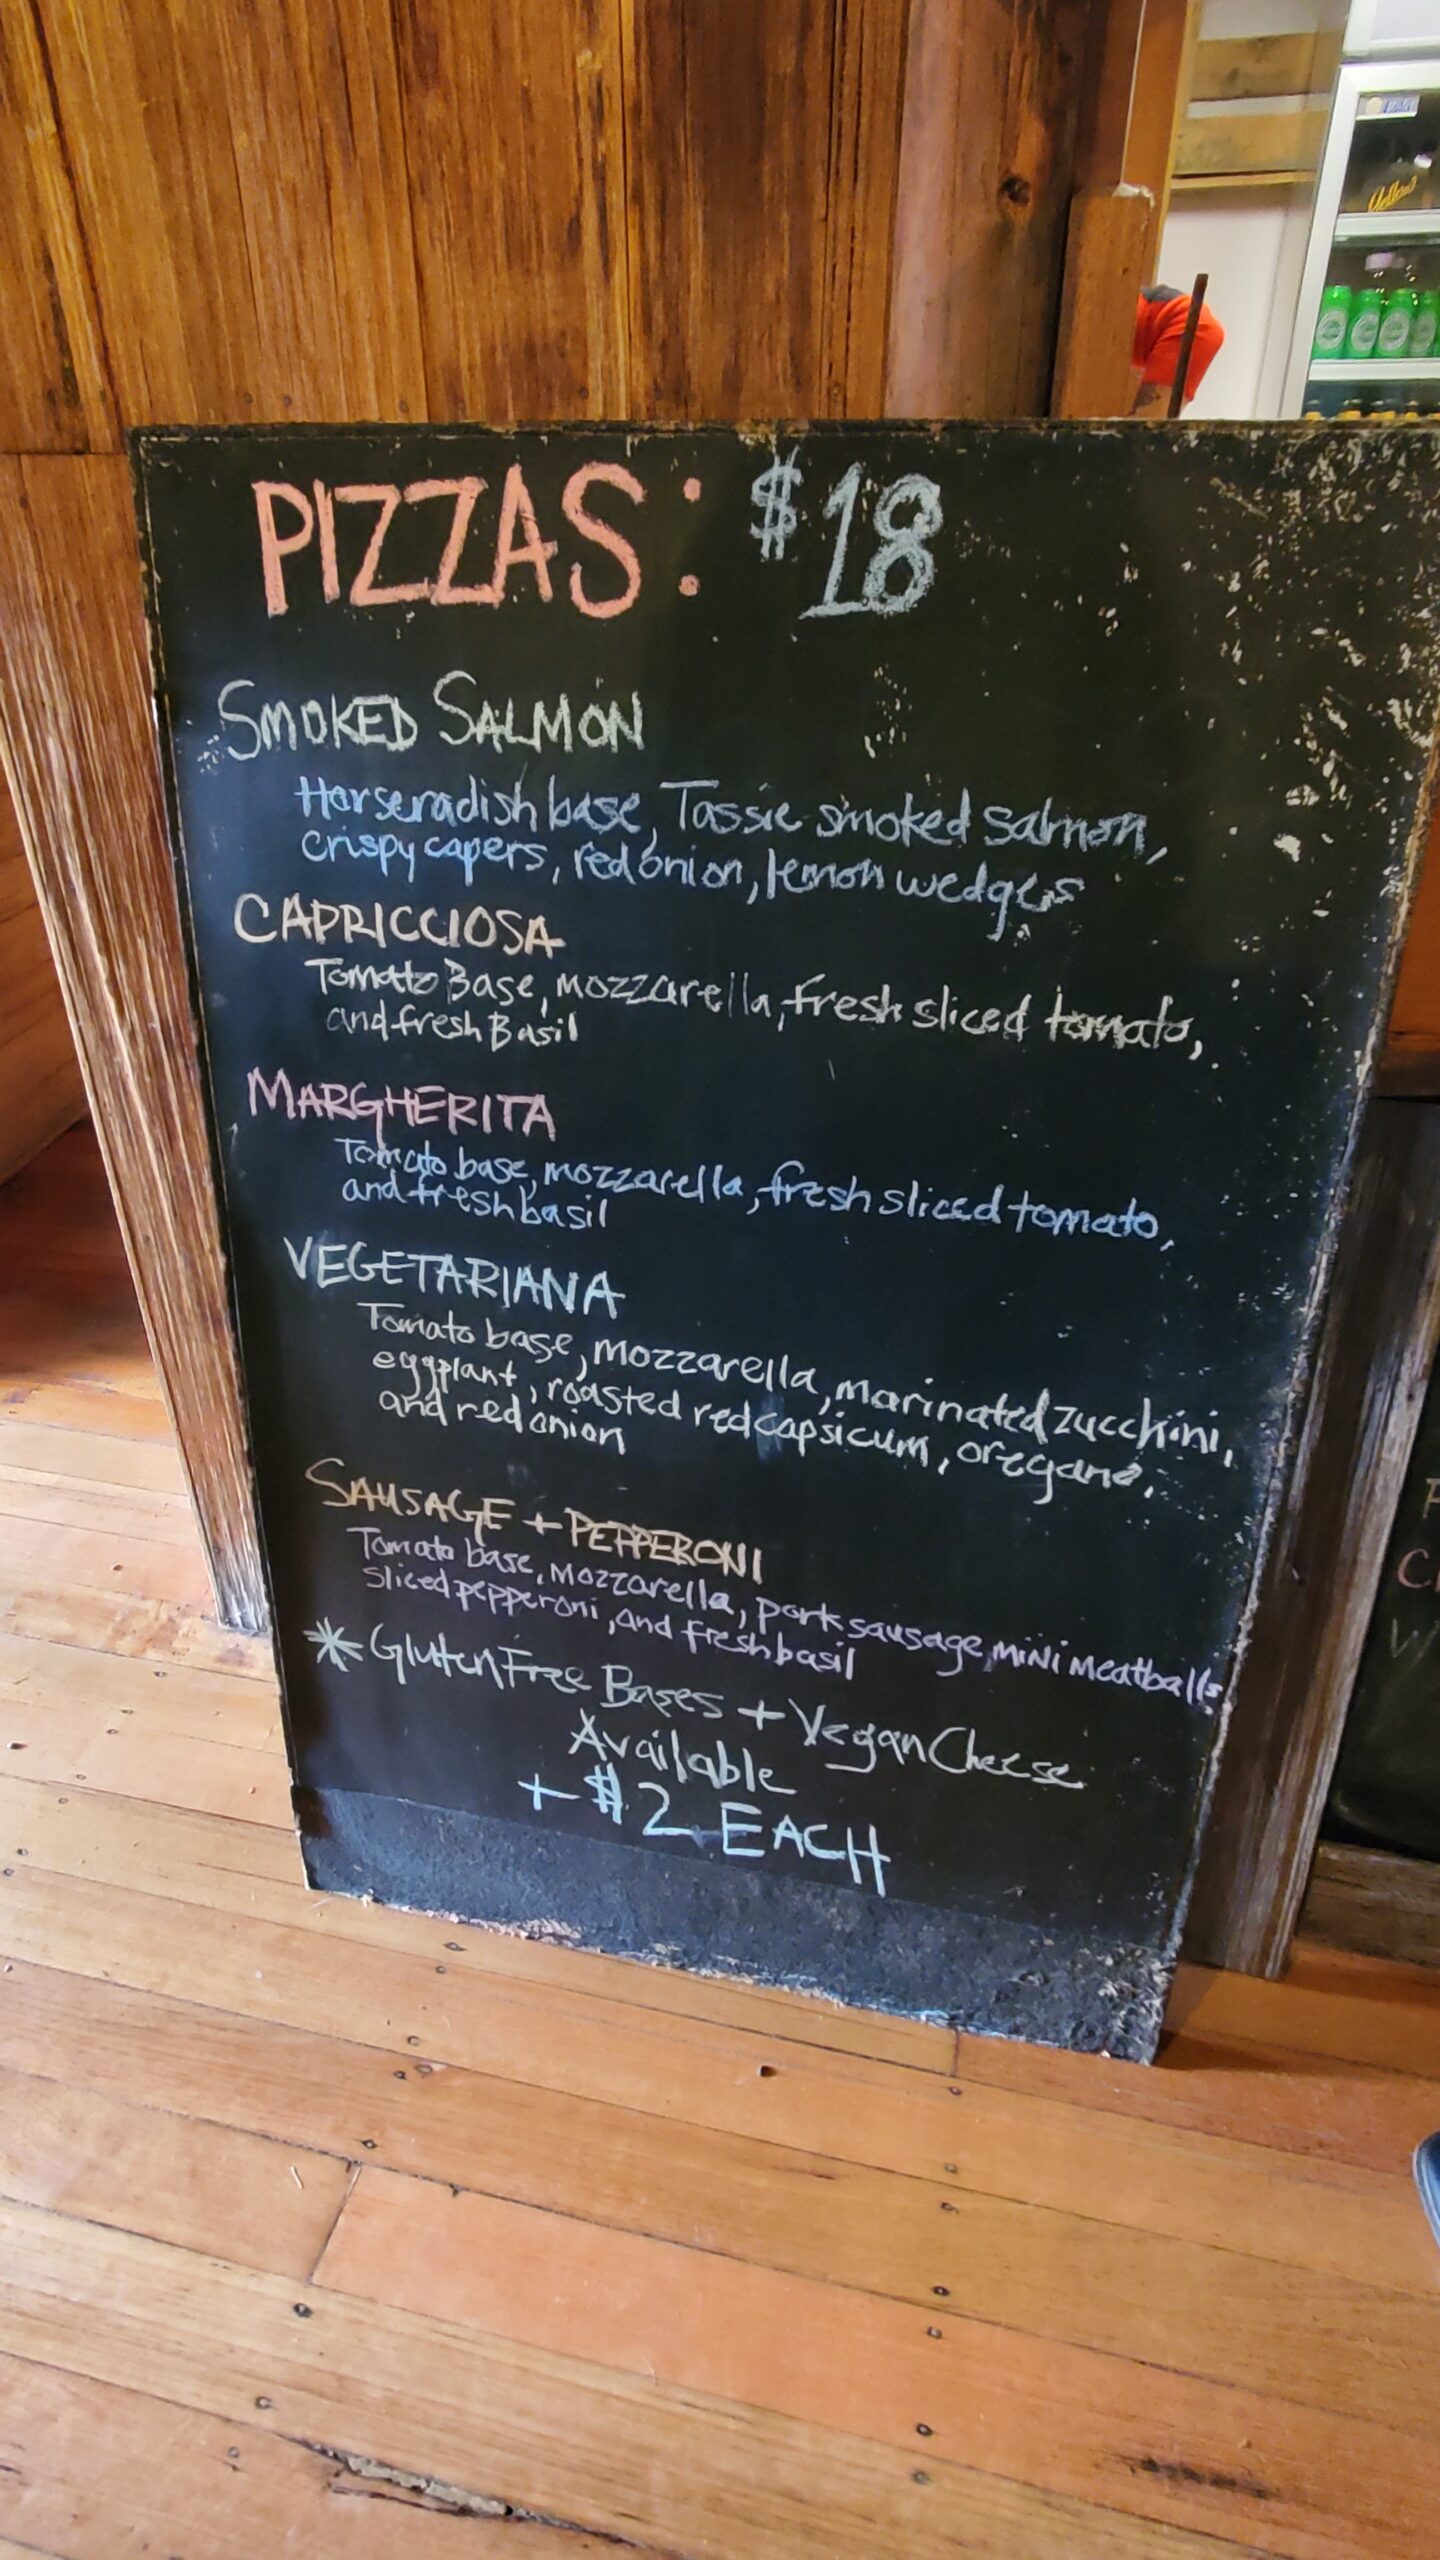 PIZZAS: $18
SMOKED SALMON
Horseradish base, Tassie smoked salmon,
crispy capers, red onion, lemon wedges
CAPRICCIOSA
Tomato Base, mozzarella, fresh sliced tomato,
and fresh Basil
MARGHERITA
Tomato base, mozzarella, fresh sliced tomato,
and fresh basil
VEGETARIANA
Tomato base, mozzarella, marinated zucchini,
eggplant, roasted red capsicum, oregano,
and red onion
SAUSAGE + PEPPERONI
Tomato base, mozzarella, pork sausage mini meatballs
sliced pepperoni, and fresh basil
* Gluten Free Bases + Vegan Cheese
Available
+ $2 EACH